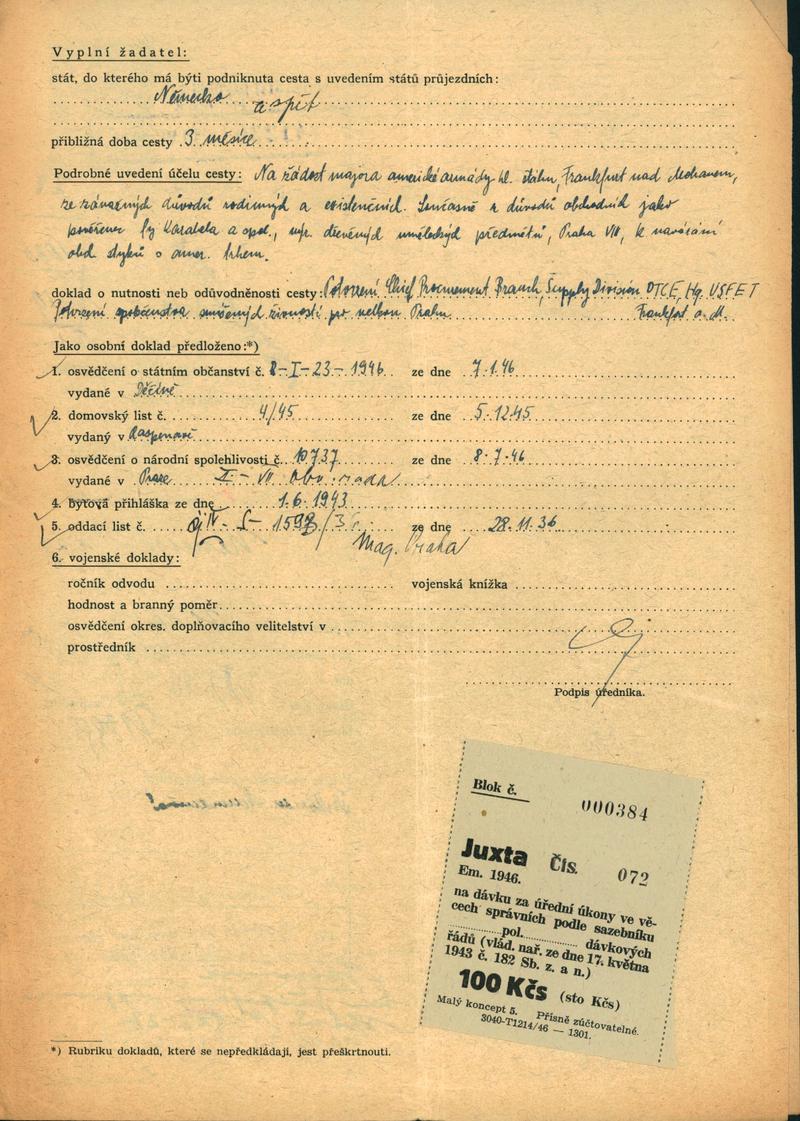 Vyplní žadatel:
stát, do kterého má býti podniknuta cesta s uvedením států průjezdních:
Německo a spět
přibližná doba cesty 3 měsíce
Podrobné uvedení účelu cesty: Na žádost majora americké armády hl. štábu, Frankfurt nad Mohanem,
ze závazných důvodů rodinných a existenčních. Současně z důvodů obchodních jako
pověřenec fy Karabela a spol., výr. dřevěných uměleckých předmětů, Praha VII, k navázání
obch. styků s amer. trhem.
doklad o nutnosti neb odůvodněnosti cesty: Potvrzení Chief Procurement Branch, Supply Division OTCE, Hq. USFET
Potvrzení společenstva sloučených živností pro velkou Prahu. Frankfurt a. M.
Jako osobní doklad předloženo:*)
1. osvědčení o státním občanství č. 8-I-23-1946 ze dne 7.1.46
vydané v Děčíně
2. domovský list č. 4/45 ze dne 5.12.45
vydaný v Raspenavě
3. osvědčení o národní spolehlivosti č. 10737 ze dne 8.7.46
vydané v Praze VII Obv. rada
4. bytová přihláška ze dne 1.6.1943
5. oddací list č. ze dne 28.11.36
Mag. Praha
6. vojenské doklady:
ročník odvodu vojenská knížka
hodnost a branný poměr
osvědčení okres. doplňovacího velitelství v
prostředník
Podpis úředníka.
Blok č.
000384
Juxta Čís. 072
Em. 1946.
na dávku za úřední úkony ve vě-
cech správních podle sazebníku
pol. dávkových
řádů (vlád. nař. ze dne 17. května
1943 č. 182 Sb. z. a n.)
100 Kčs (sto Kčs)
Malý koncept 5. Přísně zúčtovatelné.
3040-T1214/46 — 1301.
*) Rubriku dokladů, které se nepředkládají, jest přeškrtnouti.